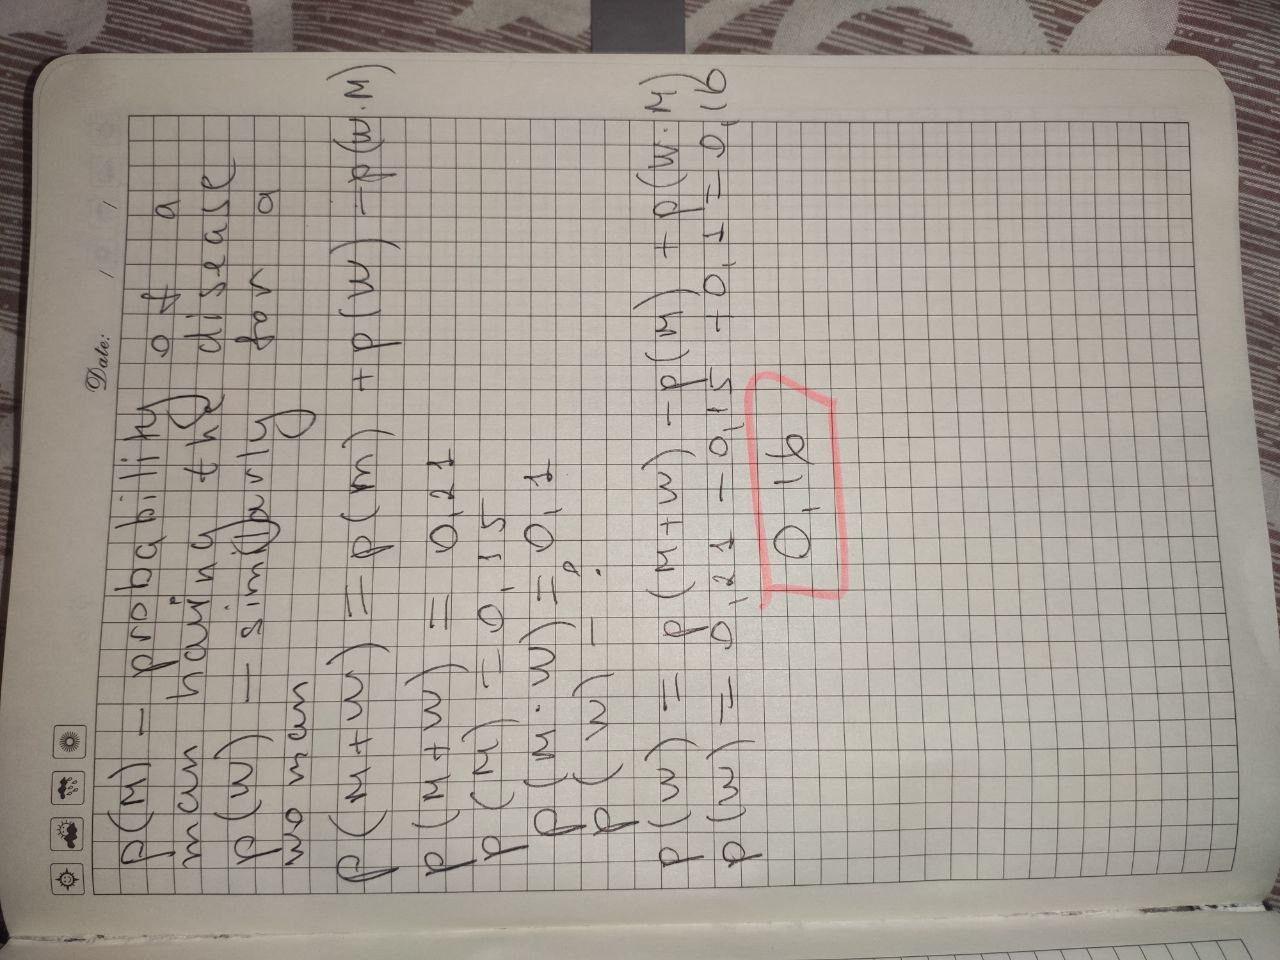 Date: / /
p(M) - probability of a
man having the disease
p(W) - similarly for a
woman
p(M+W) = p(m) + p(W) - p(W·M)
p(M+W) = 0,21
p(M) = 0,15
p(M·W) = 0,1
p(W) - ?
p(W) = p(M+W) - p(M) + p(W·M)
p(W) = 0,21 - 0,15 + 0,1 = 0,16
0,16